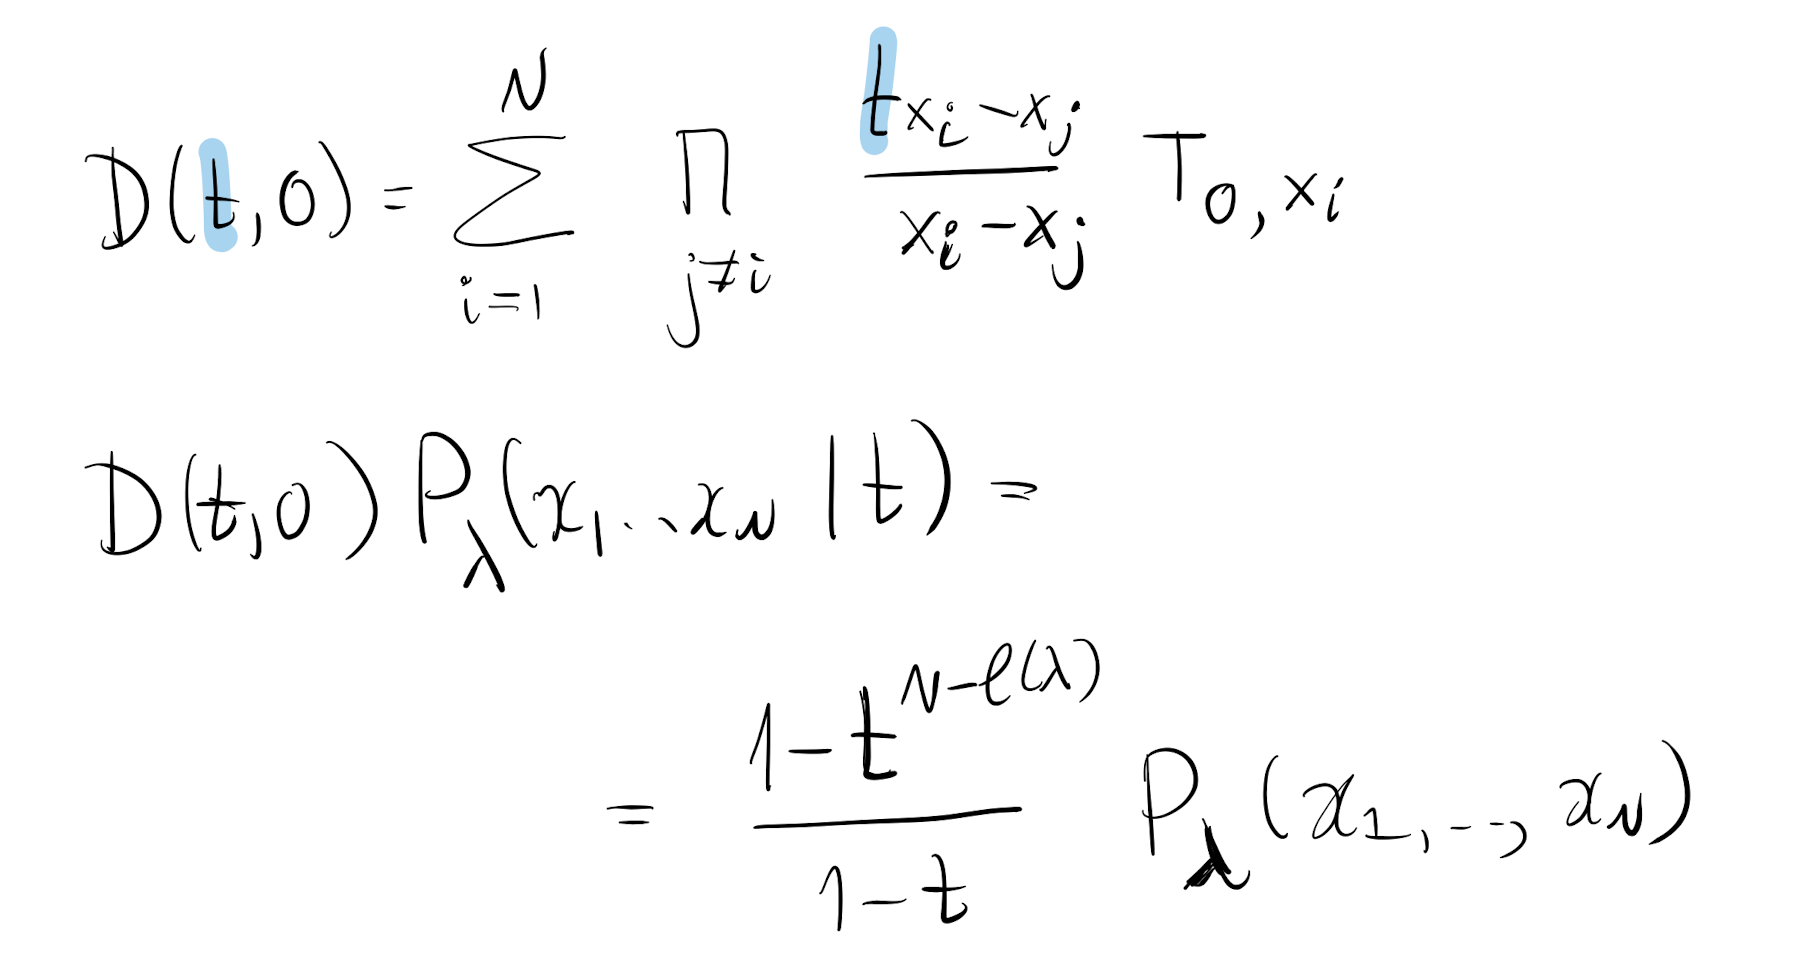 D(t,0) = \sum_{i=1}^{N} \prod_{j≠i} \frac{t x_i - x_j}{x_i - x_j} T_{0, x_i}
D(t,0) P_λ(x_1, .., x_N | t) =
= \frac{1 - t^{N-ℓ(λ)}}{1 - t} P_λ(x_1, ..., x_N)